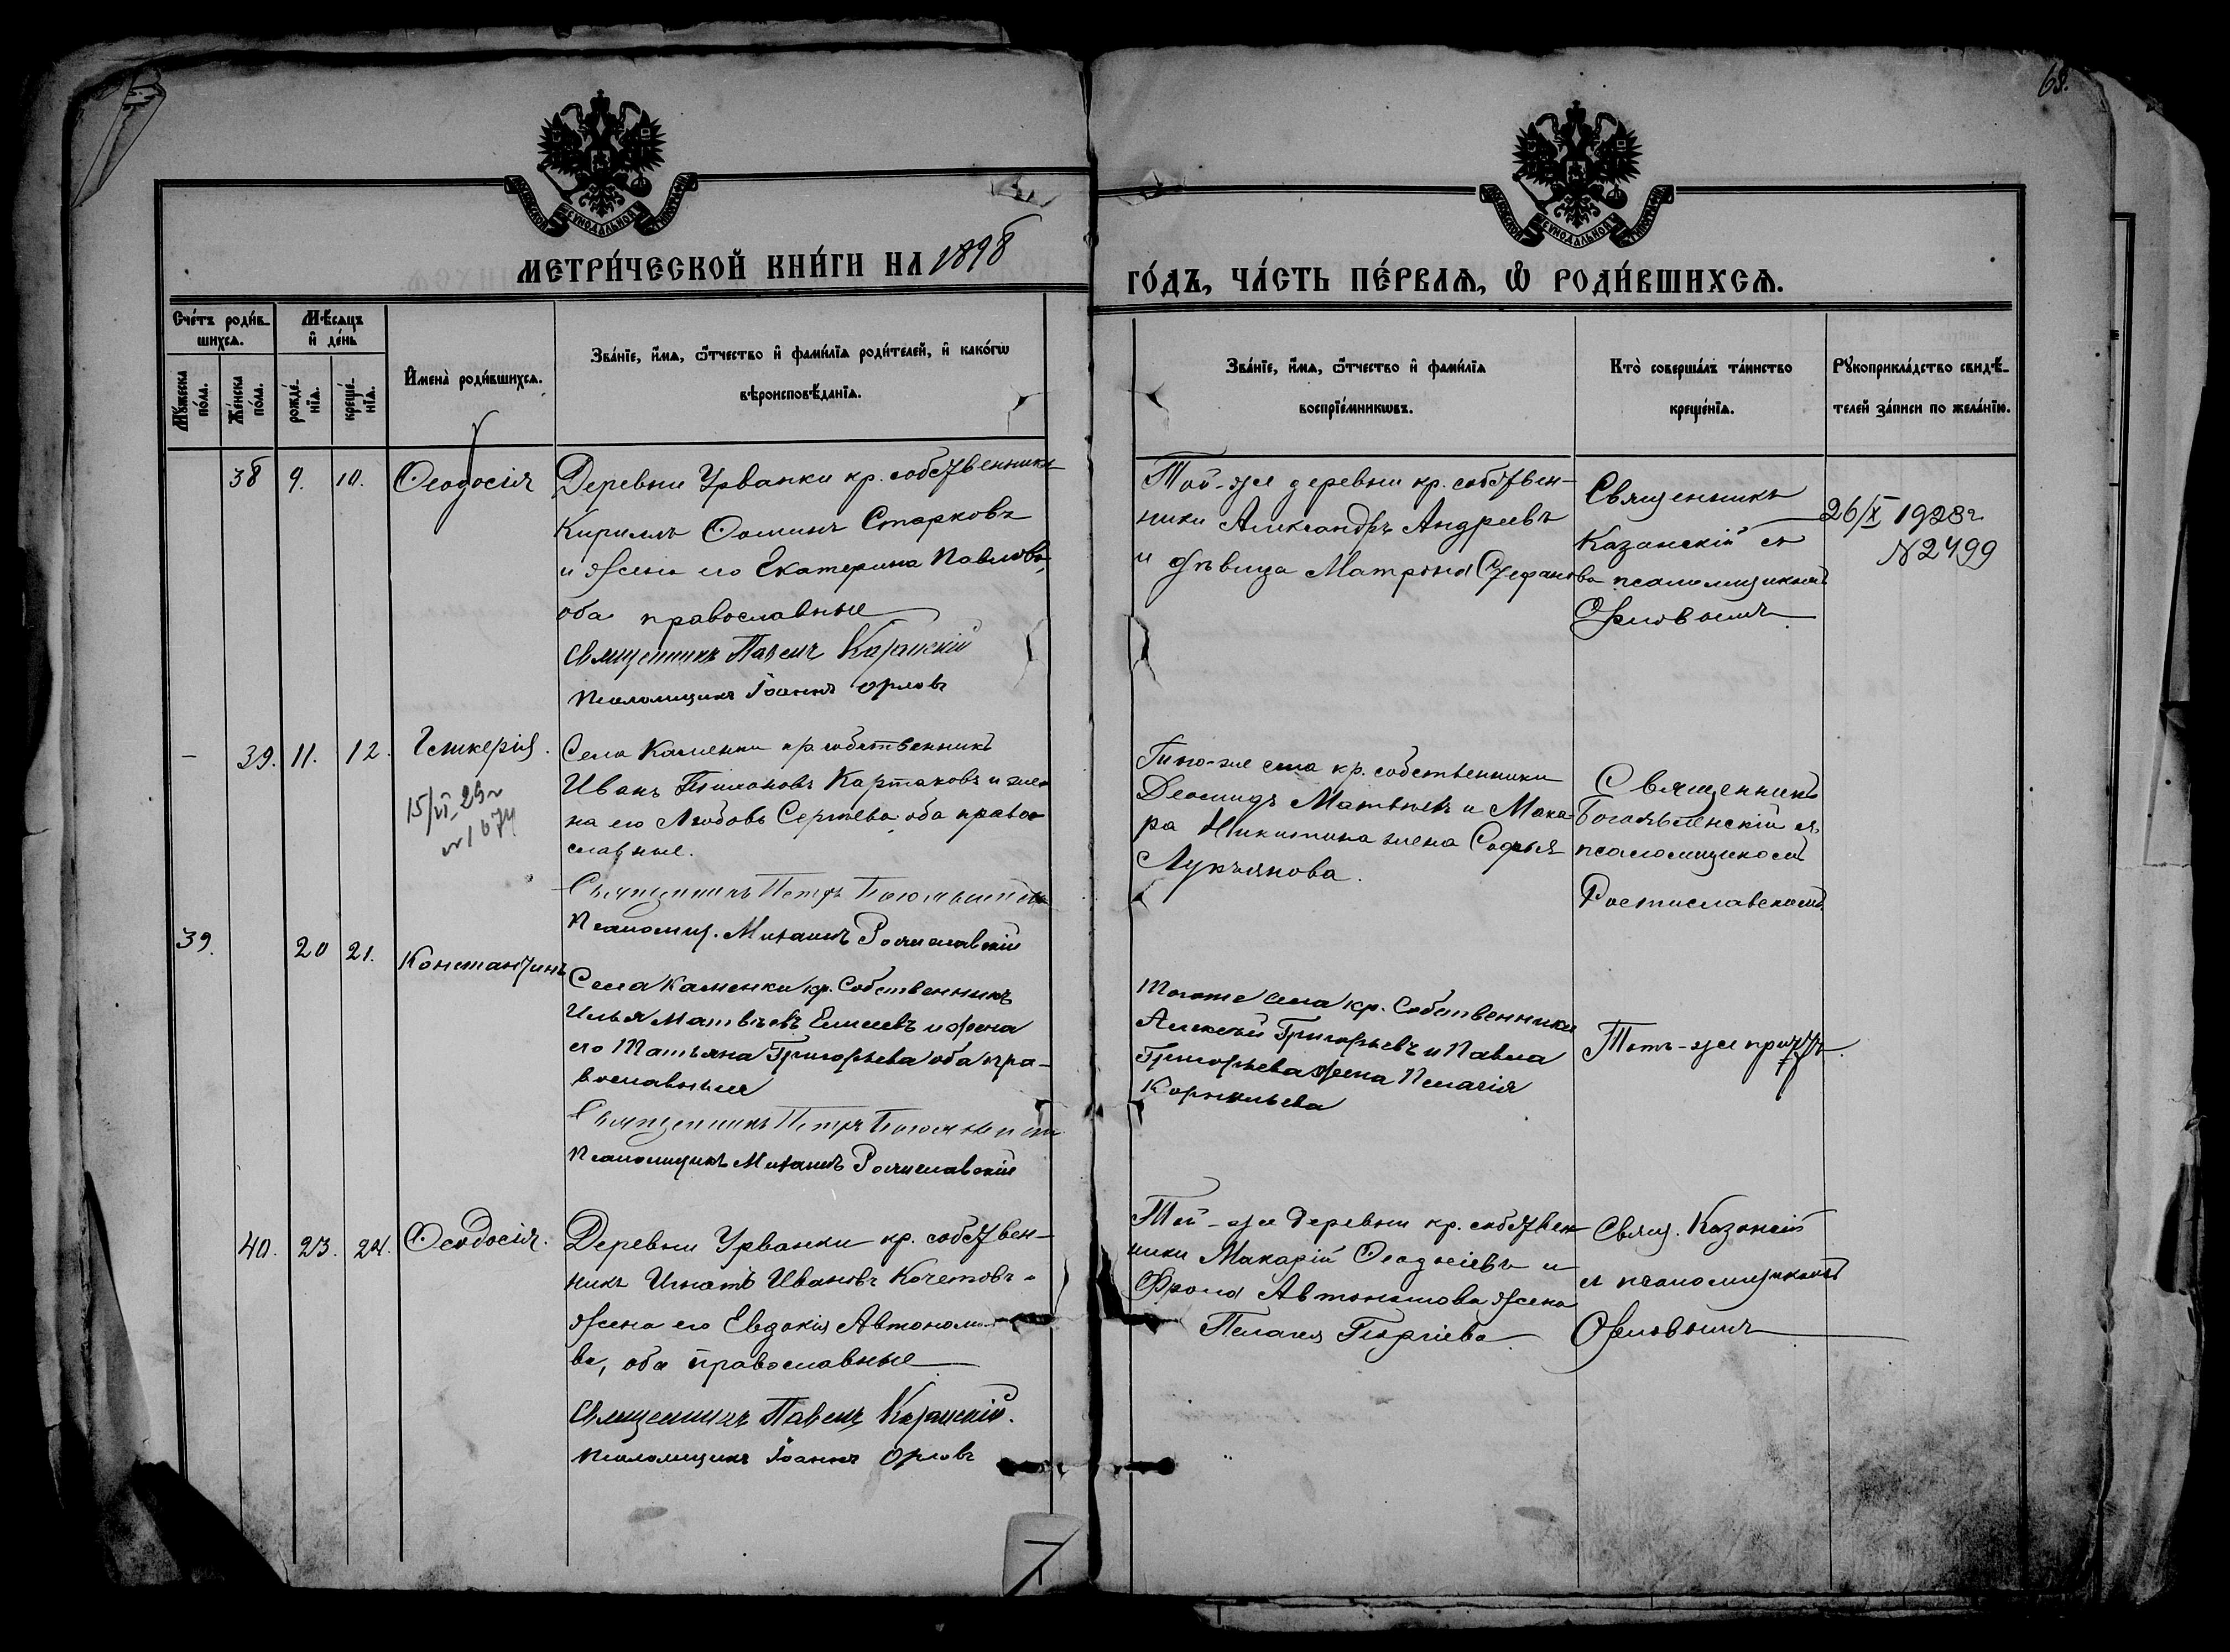 68.
МЕТРИ́ЧЕСКОЙ КНИ́ГИ НА 1898
ГО́ДЪ, ЧА́СТЬ ПЕ́РВАѦ, Ѡ҆ РОДИ́ВШИХСѦ.
Сче́тъ роди́в-
шихсѧ.
Мѣ́сѧцъ
и҆ де́нь
Мꙋ́жеска
по́ла.
Же́нска
по́ла.
рожде́-
нїѧ.
креще́-
нїѧ.
И҆мена̀ роди́вшихсѧ.
Зва́нїе, и҆́мѧ, ѻ҆́тчество и҆ фами́лїѧ роди́телей, и҆ како́гѡ
вѣроисповѣ́данїѧ.
Зва́нїе, и҆́мѧ, ѻ҆́тчество и҆ фами́лїѧ
воспрїе́мникѡвъ.
Кто̀ соверша́лъ та́инство
креще́нїѧ.
Рꙋкоприкла́дство свидѣ́-
телей за́писи по жела́нїю.
38 9. 10. Ѳеодосія
Деревни Урванки кр. собственникъ
Кириллъ Ѳоминъ Старковъ
и жена его Екатерина Павлова,
оба православные
Священникъ Павелъ Казанскій
Псаломщикъ Іоаннъ Орловъ
Той-же деревни кр. собствен-
ники Александръ Андреевъ
и дѣвица Матрона Стефанова
Священникъ
Казанскій съ
псаломщикомъ
Орловымъ
26/X 1928 г.
№ 2499
— 39. 11. 12. Гликерія.
15/VI 29 г
№ 1674
Села Каменки кр. собственникъ
Иванъ Тимоновъ Картаковъ и же
на его Любовь Сергѣева, оба право
славные.
Священникъ Петръ Богоявленскій
Псаломщ. Михаилъ Ростиславскій
Того-же села кр. собственники
Деомидъ Матвѣевъ и Мака-
ра Никитина жена Софья
Лукьянова.
Священникъ
Богоявленскій съ
псаломщикомъ
Ростиславскимъ
39. 20 21. Константинъ
Села Каменки кр. Собственникъ
Илья Матвѣевъ Елисеевъ и жена
его Татьяна Григорьева оба пра-
вославныя
Священникъ Петръ Богоявленскій
Псаломщикъ Михаилъ Ростиславскій
Тогоже села кр. Собственники
Алексѣй Григорьевъ и Павла
Григорьева жена Пелагія
Корнильева
Тотъ-же причтъ.
40. 23. 24. Ѳеодосія.
Деревни Урванки кр. собствен-
никъ Игнатъ Ивановъ Кочетовъ и
жена его Евдокія Автономо-
ва, оба православные
Священникъ Павелъ Казанскій.
Псаломщикъ Іоаннъ Орловъ
Той-же деревни кр. собствен
ники Макарій Ѳеодосіевъ и
Фрола Автономова жена
Пелагея Георгіева
Свящ. Казанскій
съ псаломщикомъ
Орловымъ